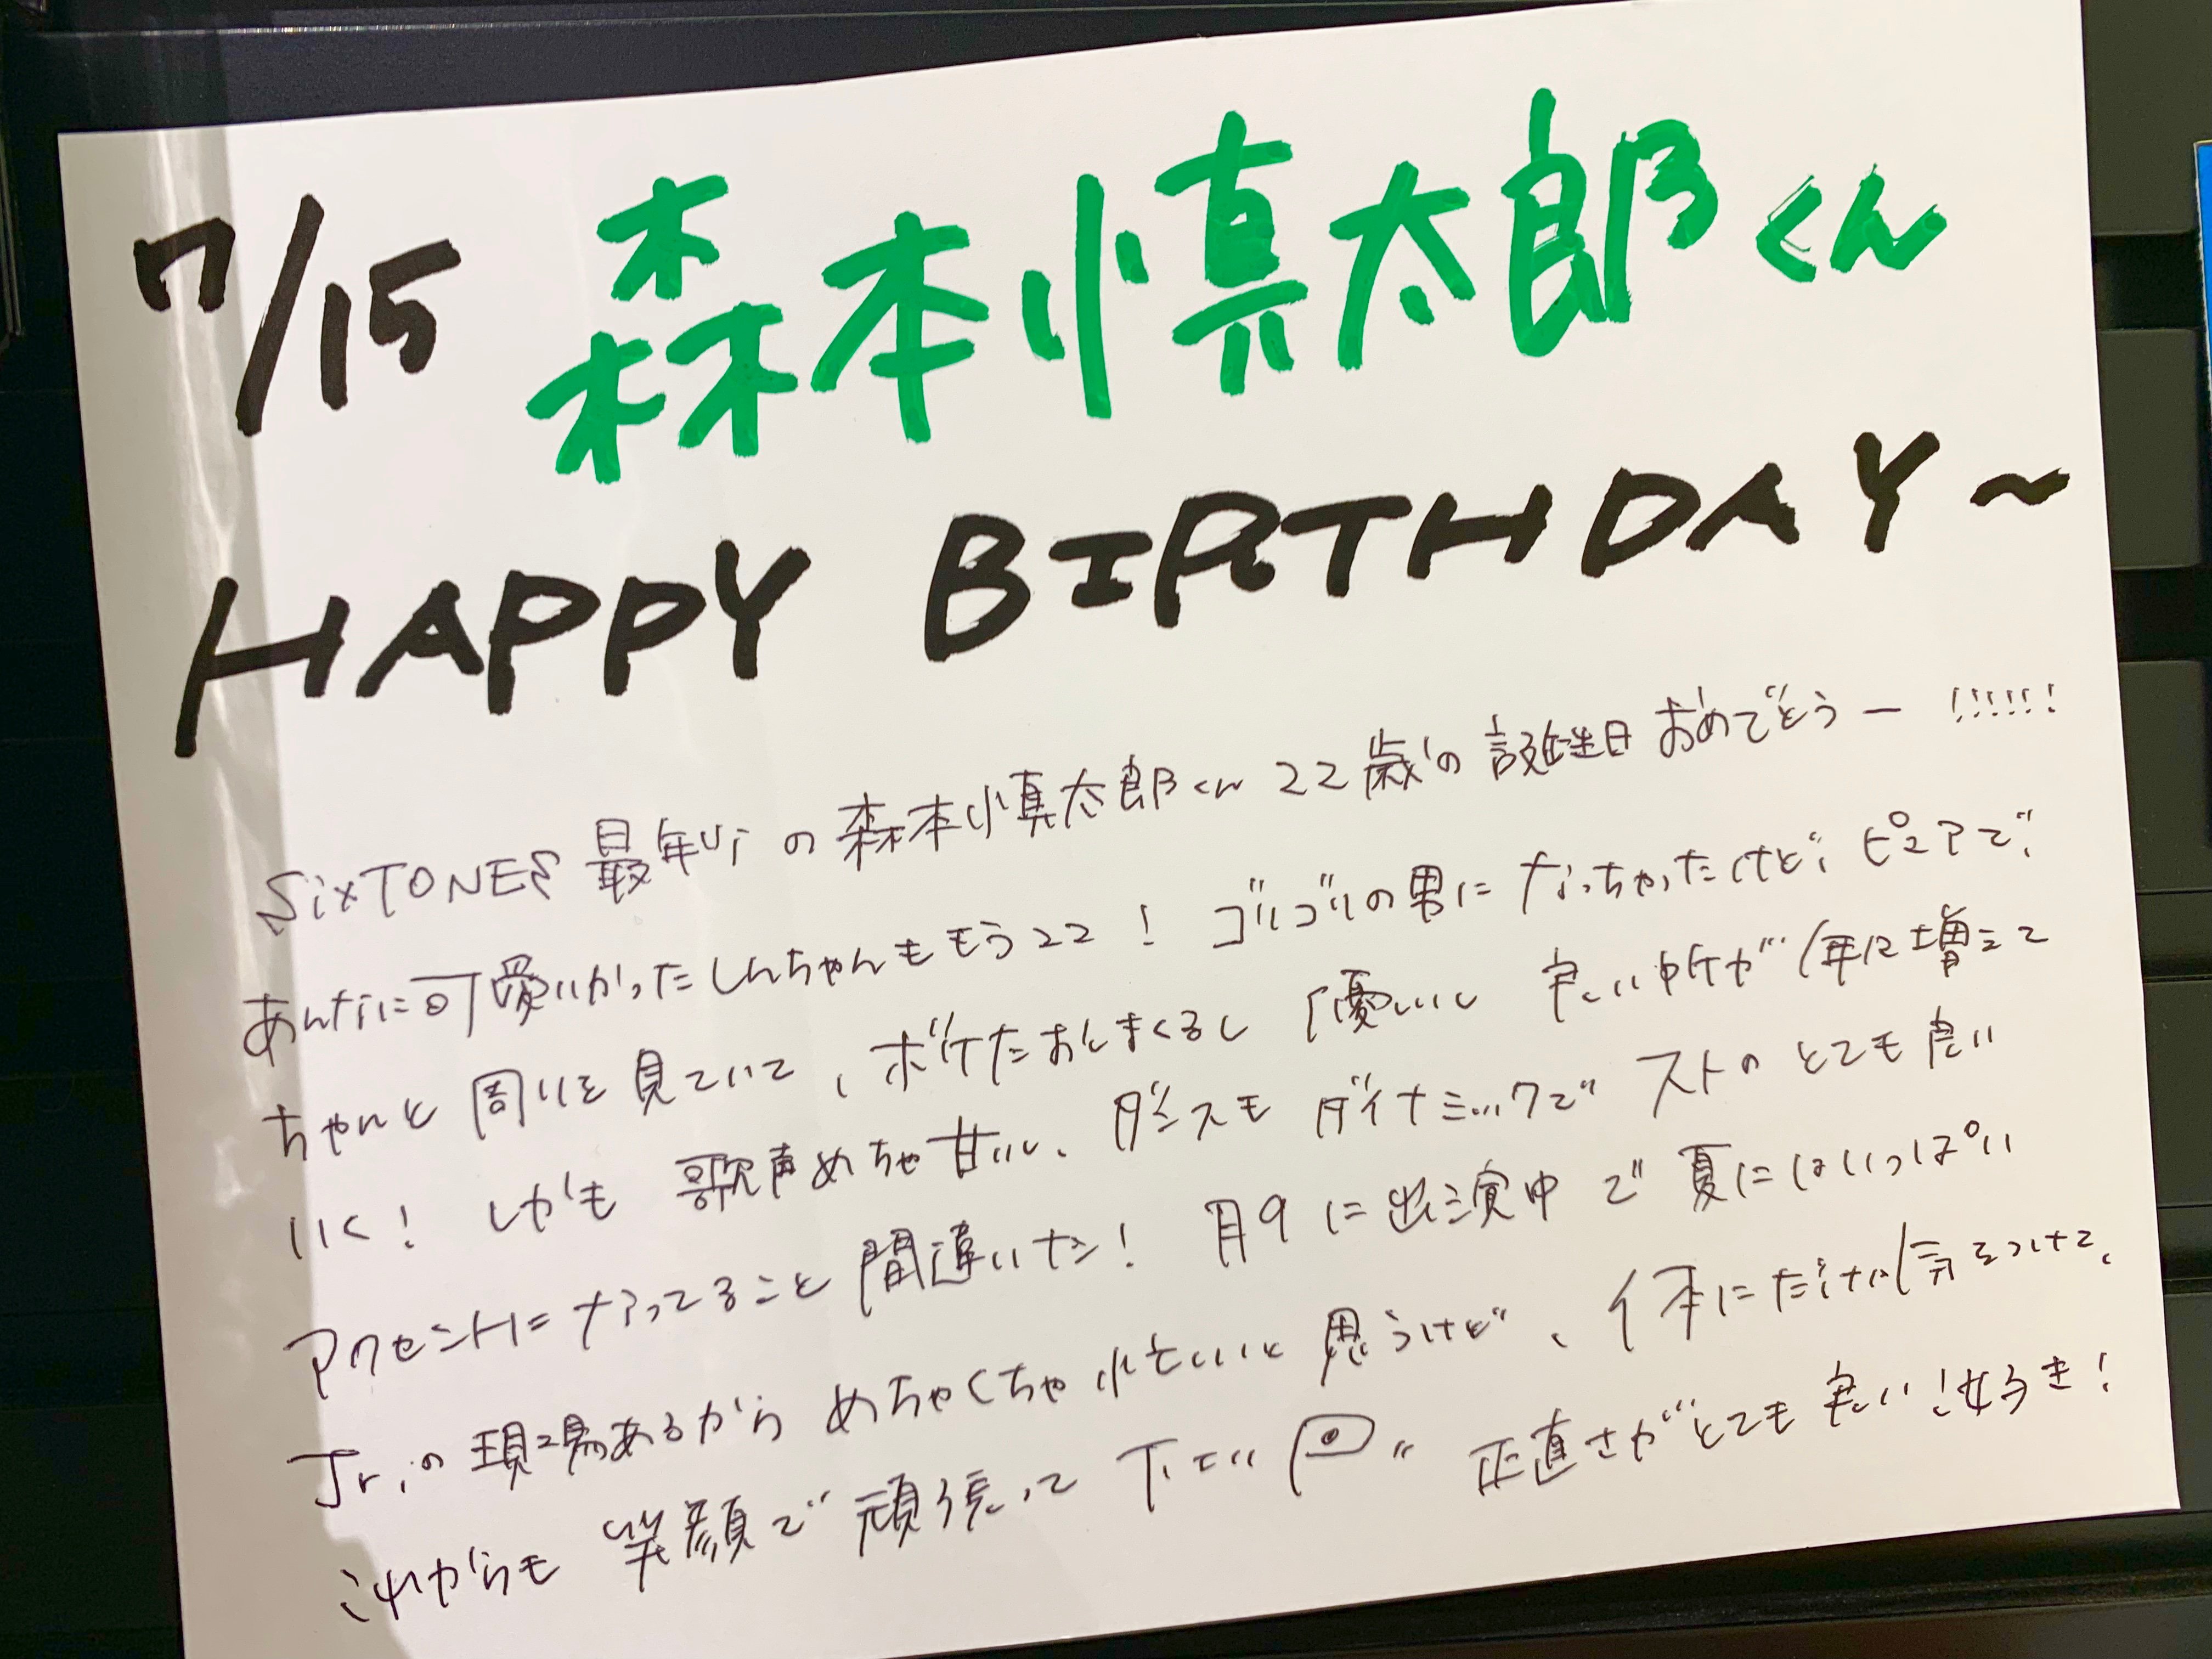 7/15 森本慎太郎くん
HAPPY BIRTHDAY~
SixTONES 最年少の森本慎太郎くん 22歳の誕生日おめでとうー!!!!!!
あんなに可愛いかったしんちゃんももう22! ゴリゴリの男になっちゃったけど、ピュアで、
ちゃんと周りを見ていて、ボケたおしまくるし優しいし 良い所が年に増えて
いく! しかも歌声めちゃ甘いし、ダンスもダイナミックで ストのとても良い
アクセントになってること間違いナシ! 月9に出演中で夏にはいっぱい
Jr.の現場あるから めちゃくちゃ忙しいと思うけど、体にだけは気をつけて、
これからも笑顔で頑張って下さい 正直さがとても良い!好き!